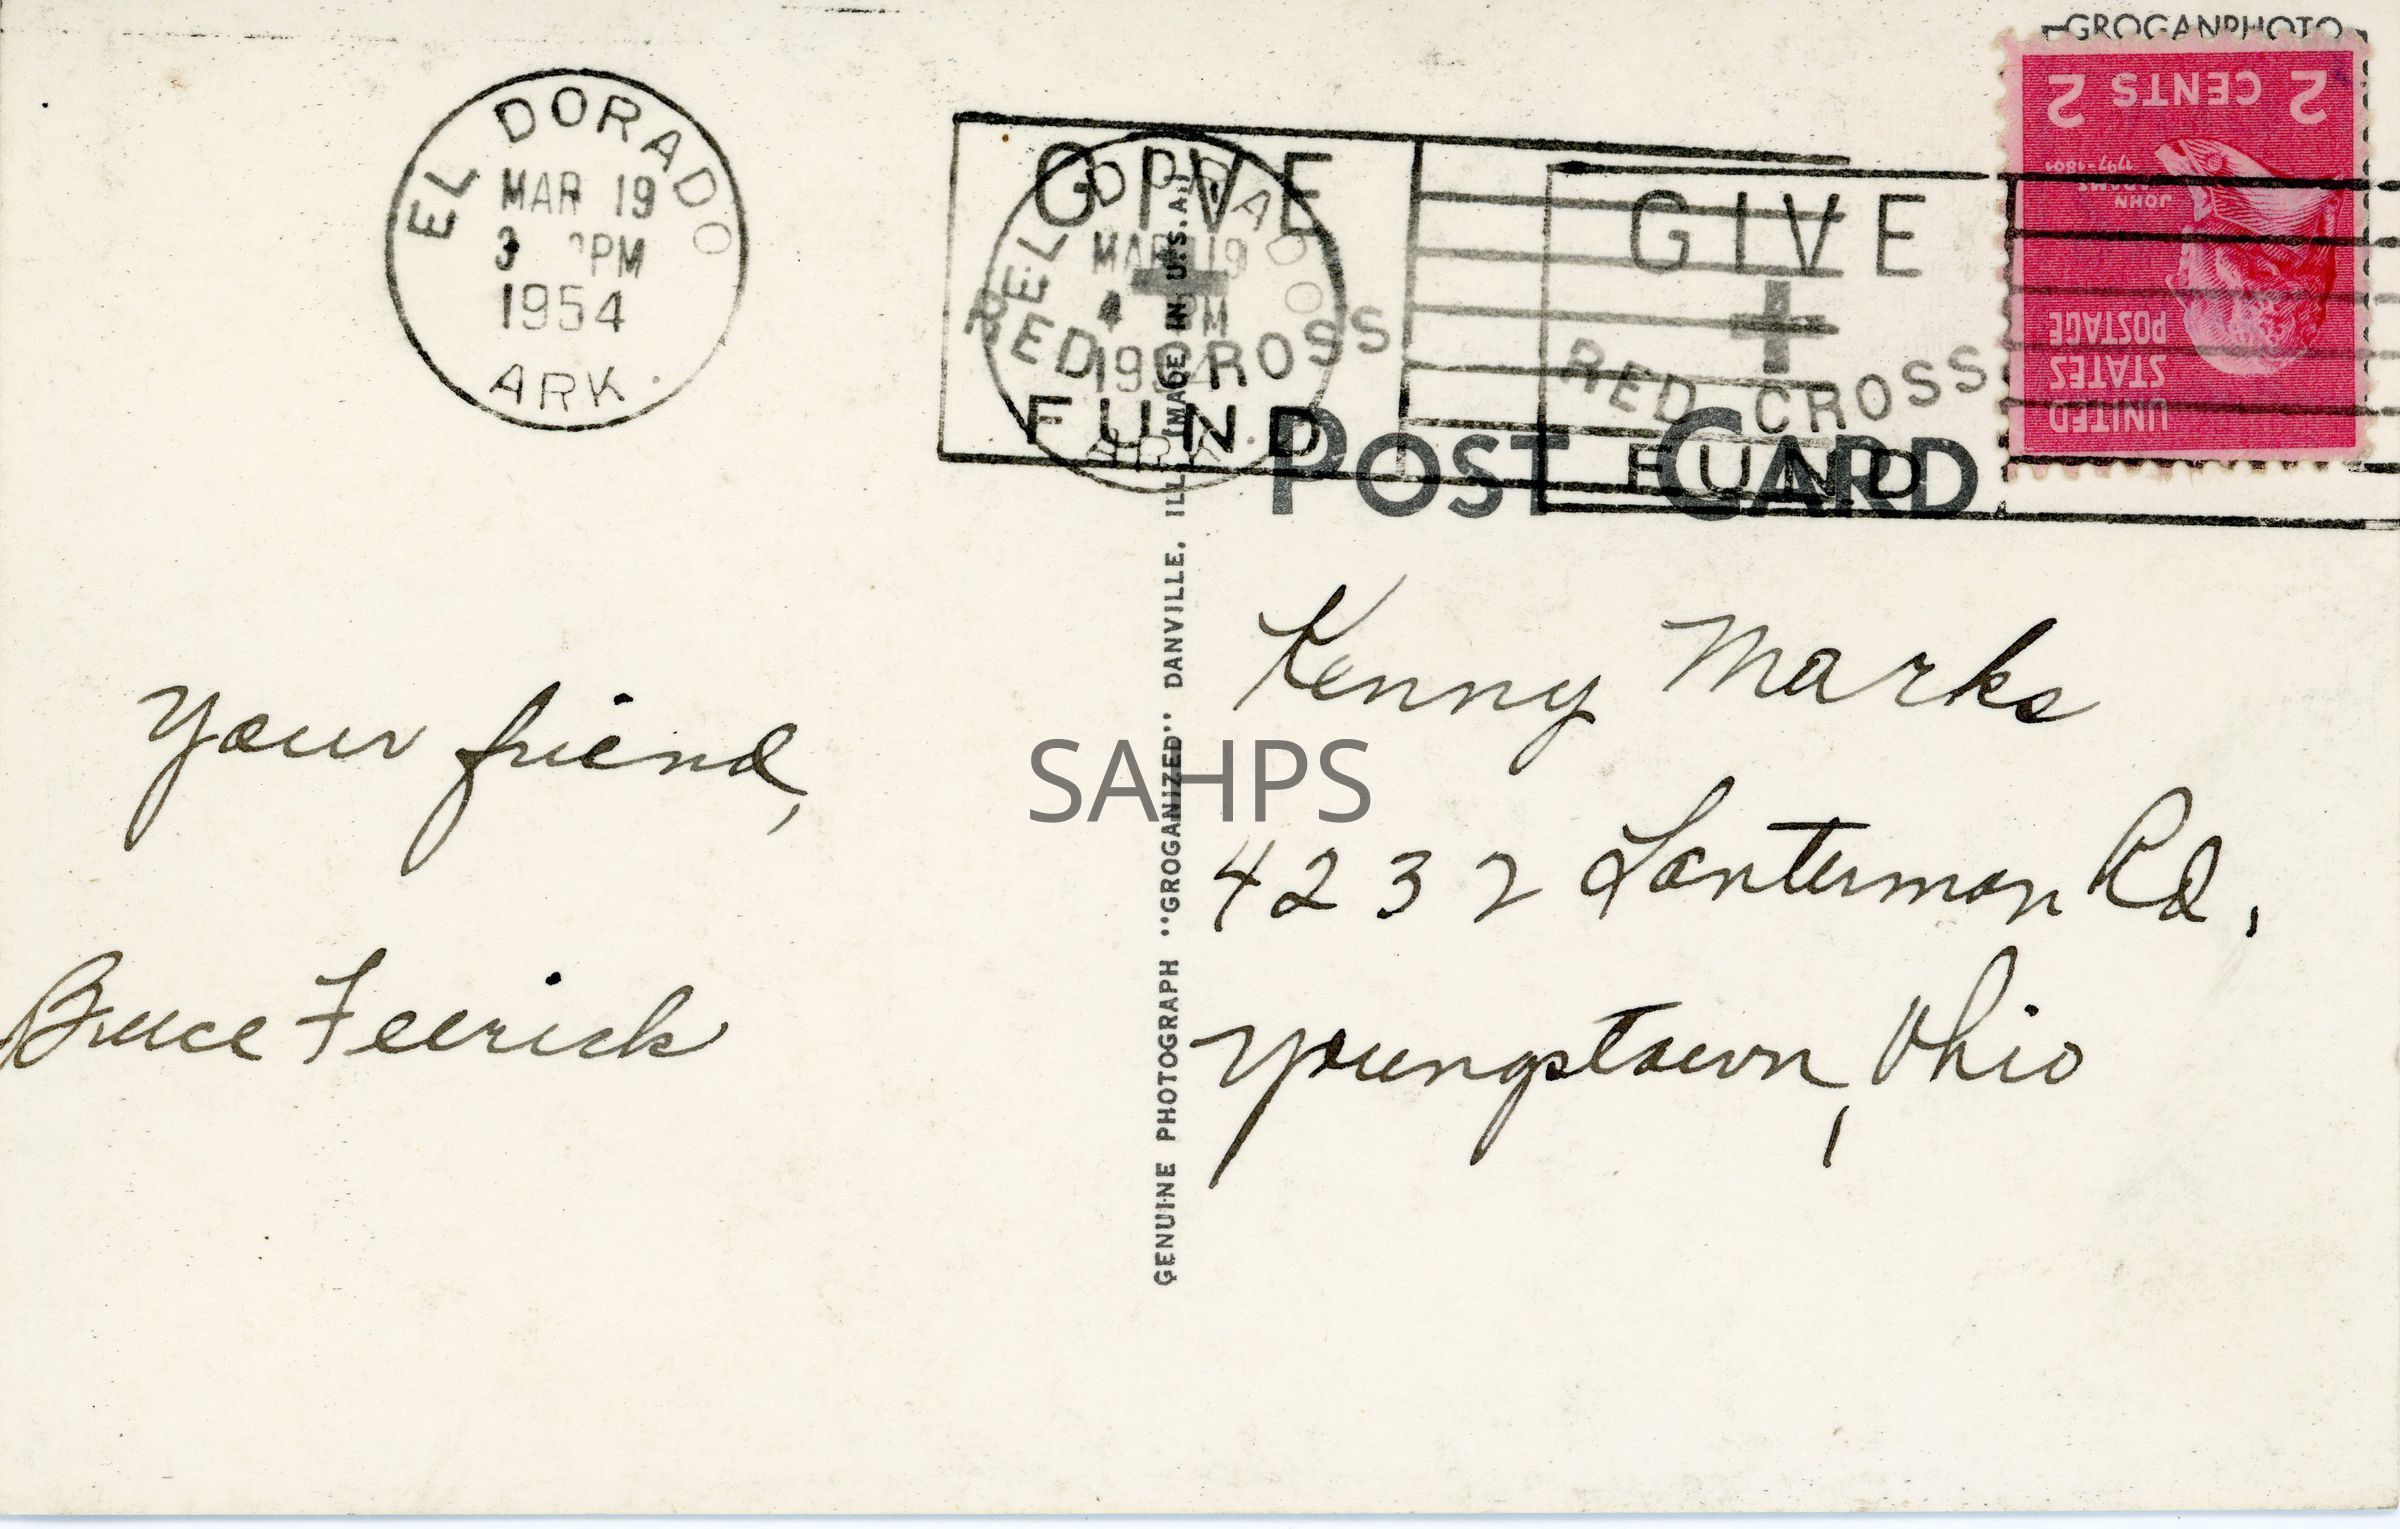 GROGANPHOTO
EL DORADO
MAR 19
3 PM
1954
ARK.
GIVE
RED CROSS
FUND
EL DORADO
MAR 19
PM
ARK.
GIVE
RED CROSS
FUND
2 CENTS 2
JOHN
ADAMS
1797-1801
UNITED
STATES
POSTAGE
POST CARD
GENUINE PHOTOGRAPH "GROGANIZED" DANVILLE, ILL. (MADE IN U.S.A.)
Your friend,
Bruce Feerick
Kenny Marks
4232 Lanterman Rd,
Youngstown, Ohio
SAHPS